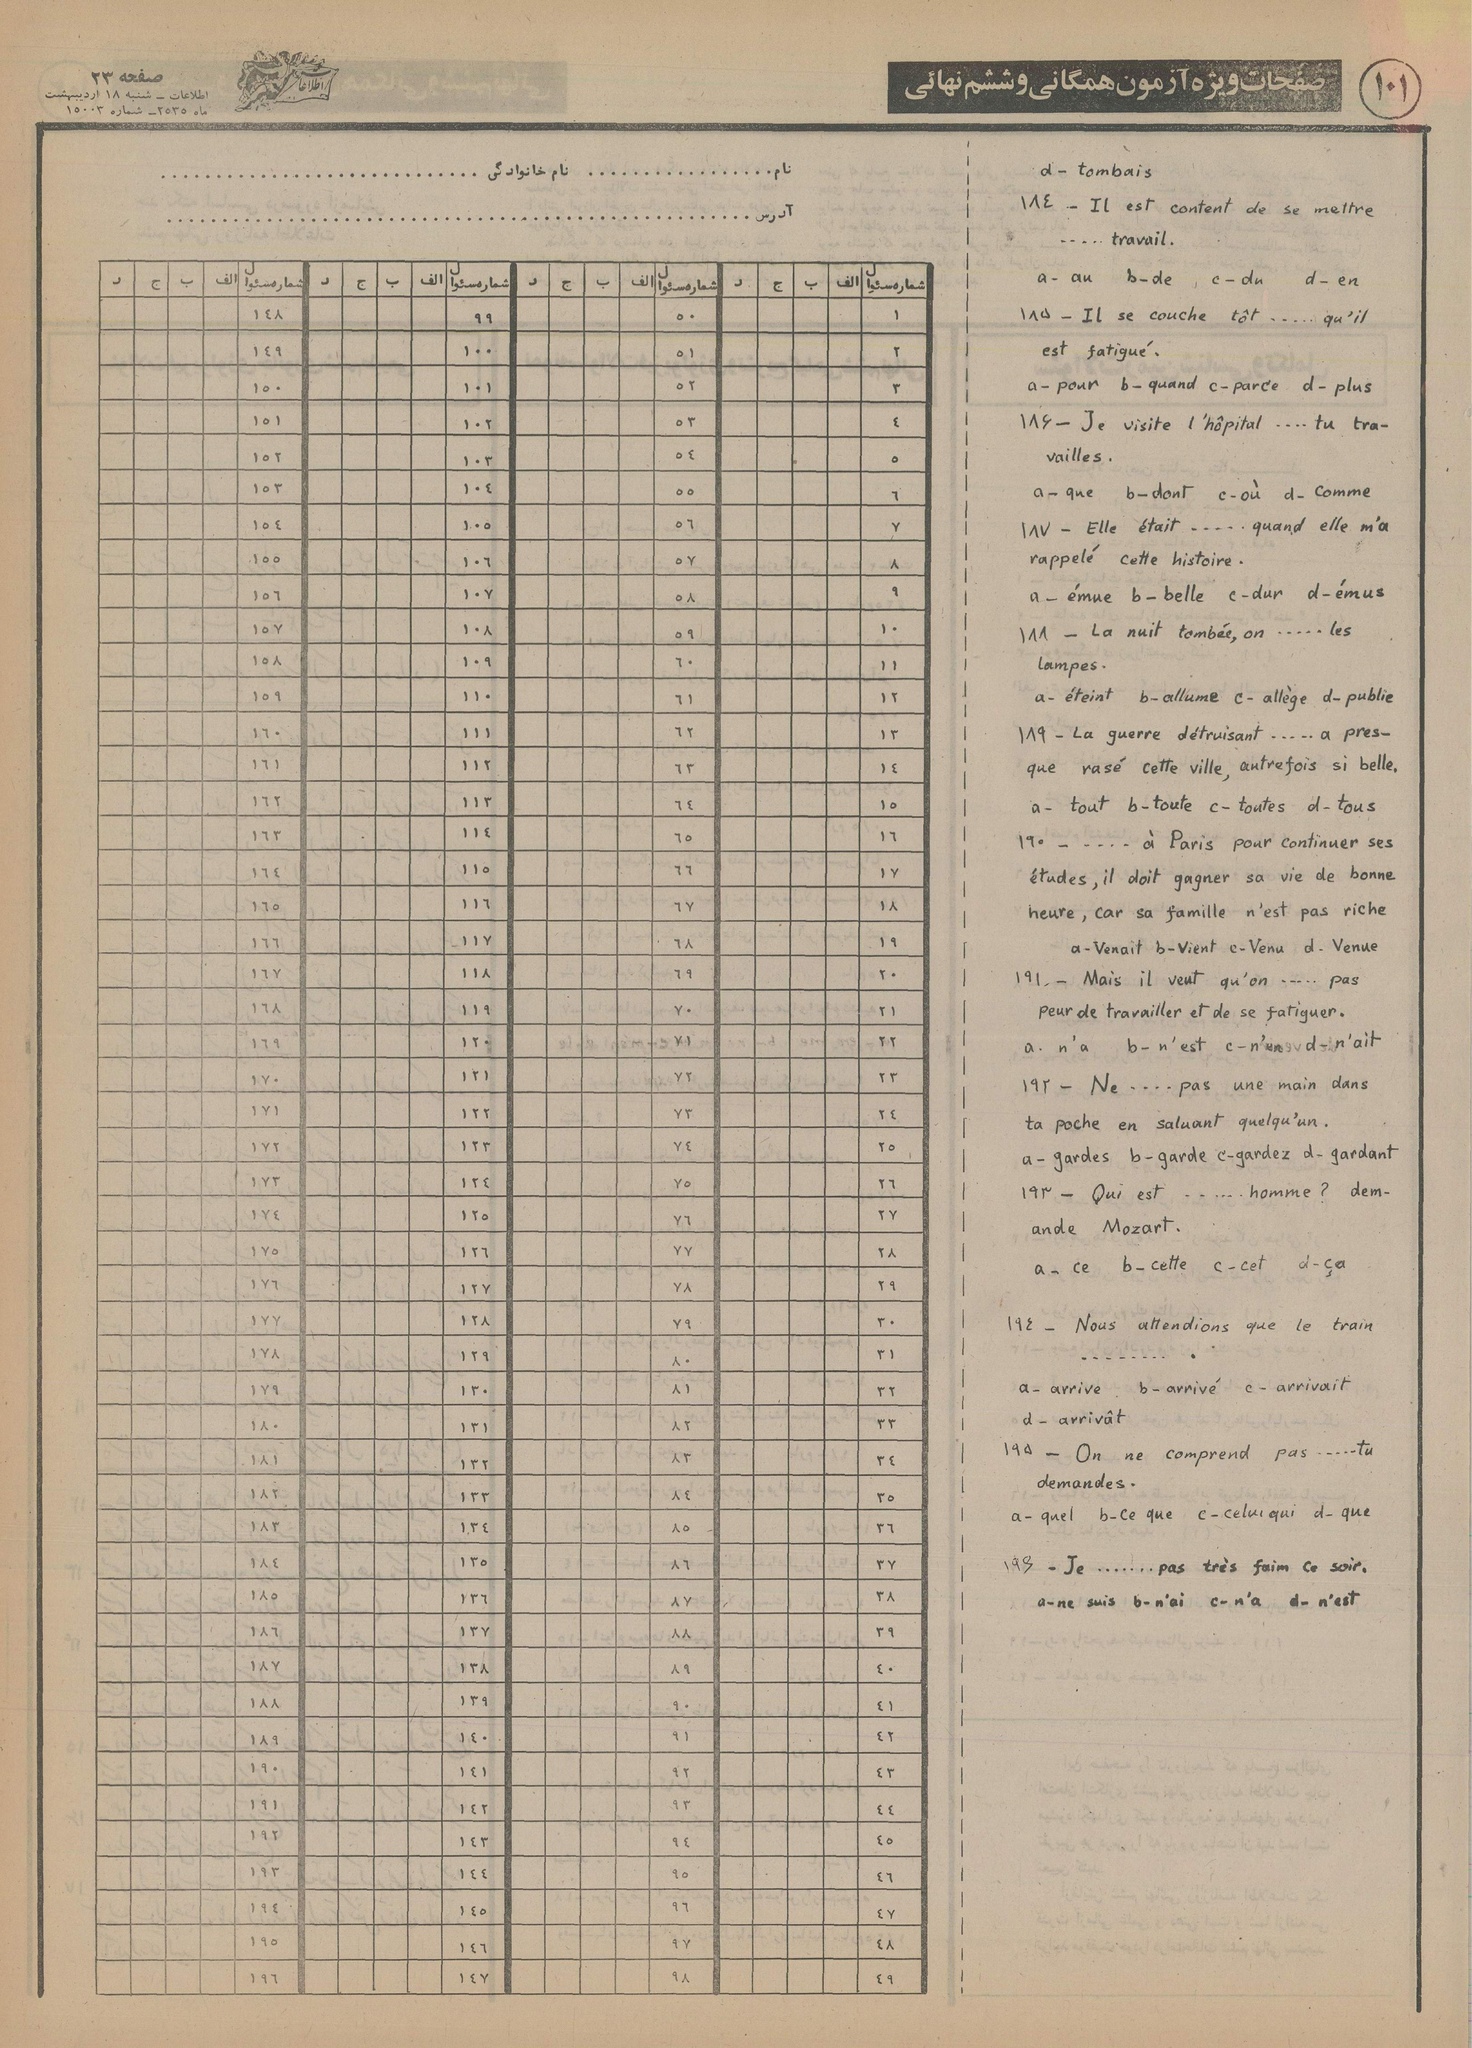 ۱۰۱
صفحات ویژه آزمون همگانی و ششم نهائی
صفحه ۲۳
اطلاعات – شنبه ۱۸ اردیبهشت
ماه ۲۵۳۵– شماره ۱۵۰۰۳
اطلاعات
d- tombais
۱۸٤ – Il est content de se mettre
----- travail.
a- au b-de c-du d-en
۱۸۵ – Il se couche tôt ----- qu'il
est fatigué.
a-pour b-quand c-parce d-plus
۱۸۶ – Je visite l'hôpital ---- tu tra-
vailles.
a-que b-dont c-où d-Comme
۱۸۷ – Elle était ----- quand elle m'a
rappelé cette histoire.
a-émue b-belle c-dur d-émus
۱۸۸ – La nuit tombée, on ----- les
lampes.
a-éteint b-allume c-allège d-publie
۱۸۹ – La guerre détruisant ----- a pres-
que rasé cette ville, autrefois si belle.
a- tout b-toute c-toutes d-tous
۱۹۰ – ---- à Paris pour continuer ses
études, il doit gagner sa vie de bonne
heure, car sa famille n'est pas riche
a-Venait b-Vient c-Venu d-Venue
۱۹۱ – Mais il veut qu'on ----- pas
peur de travailler et de se fatiguer.
a- n'a b-n'est c-n'en d-n'ait
۱۹۲ – Ne ---- pas une main dans
ta poche en saluant quelqu'un.
a-gardes b-garde c-gardez d-gardant
۱۹۳ – Qui est ------ homme? dem-
ande Mozart.
a-ce b-cette c-cet d-ça
۱۹٤ – Nous attendions que le train
--------- .
a-arrive b-arrivé c-arrivait
d-arrivât
۱۹۵ – On ne comprend pas ----- tu
demandes.
a-quel b-ce que c-celui qui d-que
۱۹۶ – Je ....... pas très faim ce soir.
a-ne suis b-n'ai c-n'a d-n'est
نام ................. نام خانوادگی .............................
آدرس ..........................................................
شماره سئوال الف ب ج د شماره سئوال الف ب ج د شماره سئوال الف ب ج د شماره سئوال الف ب ج د
۱ ۵۰ ۹۹ ۱٤۸
۲ ۵۱ ۱۰۰ ۱٤۹
۳ ۵۲ ۱۰۱ ۱۵۰
٤ ۵۳ ۱۰۲ ۱۵۱
۵ ۵٤ ۱۰۳ ۱۵۲
٦ ۵۵ ۱۰٤ ۱۵۳
۷ ۵٦ ۱۰۵ ۱۵٤
۸ ۵۷ ۱۰٦ ۱۵۵
۹ ۵۸ ۱۰۷ ۱۵٦
۱۰ ۵۹ ۱۰۸ ۱۵۷
۱۱ ٦۰ ۱۰۹ ۱۵۸
۱۲ ٦۱ ۱۱۰ ۱۵۹
۱۳ ٦۲ ۱۱۱ ۱٦۰
۱٤ ٦۳ ۱۱۲ ۱٦۱
۱۵ ٦٤ ۱۱۳ ۱٦۲
۱٦ ٦۵ ۱۱٤ ۱٦۳
۱۷ ٦٦ ۱۱۵ ۱٦٤
۱۸ ٦۷ ۱۱٦ ۱٦۵
۱۹ ٦۸ ۱۱۷ ۱٦٦
۲۰ ٦۹ ۱۱۸ ۱٦۷
۲۱ ۷۰ ۱۱۹ ۱٦۸
۲۲ ۷۱ ۱۲۰ ۱٦۹
۲۳ ۷۲ ۱۲۱ ۱۷۰
۲٤ ۷۳ ۱۲۲ ۱۷۱
۲۵ ۷٤ ۱۲۳ ۱۷۲
۲٦ ۷۵ ۱۲٤ ۱۷۳
۲۷ ۷٦ ۱۲۵ ۱۷٤
۲۸ ۷۷ ۱۲٦ ۱۷۵
۲۹ ۷۸ ۱۲۷ ۱۷٦
۳۰ ۷۹ ۱۲۸ ۱۷۷
۳۱ ۸۰ ۱۲۹ ۱۷۸
۳۲ ۸۱ ۱۳۰ ۱۷۹
۳۳ ۸۲ ۱۳۱ ۱۸۰
۳٤ ۸۳ ۱۳۲ ۱۸۱
۳۵ ۸٤ ۱۳۳ ۱۸۲
۳٦ ۸۵ ۱۳٤ ۱۸۳
۳۷ ۸٦ ۱۳۵ ۱۸٤
۳۸ ۸۷ ۱۳٦ ۱۸۵
۳۹ ۸۸ ۱۳۷ ۱۸٦
٤۰ ۸۹ ۱۳۸ ۱۸۷
٤۱ ۹۰ ۱۳۹ ۱۸۸
٤۲ ۹۱ ۱٤۰ ۱۸۹
٤۳ ۹۲ ۱٤۱ ۱۹۰
٤٤ ۹۳ ۱٤۲ ۱۹۱
٤۵ ۹٤ ۱٤۳ ۱۹۲
٤٦ ۹۵ ۱٤٤ ۱۹۳
٤۷ ۹٦ ۱٤۵ ۱۹٤
٤۸ ۹۷ ۱٤٦ ۱۹۵
٤۹ ۹۸ ۱٤۷ ۱۹٦